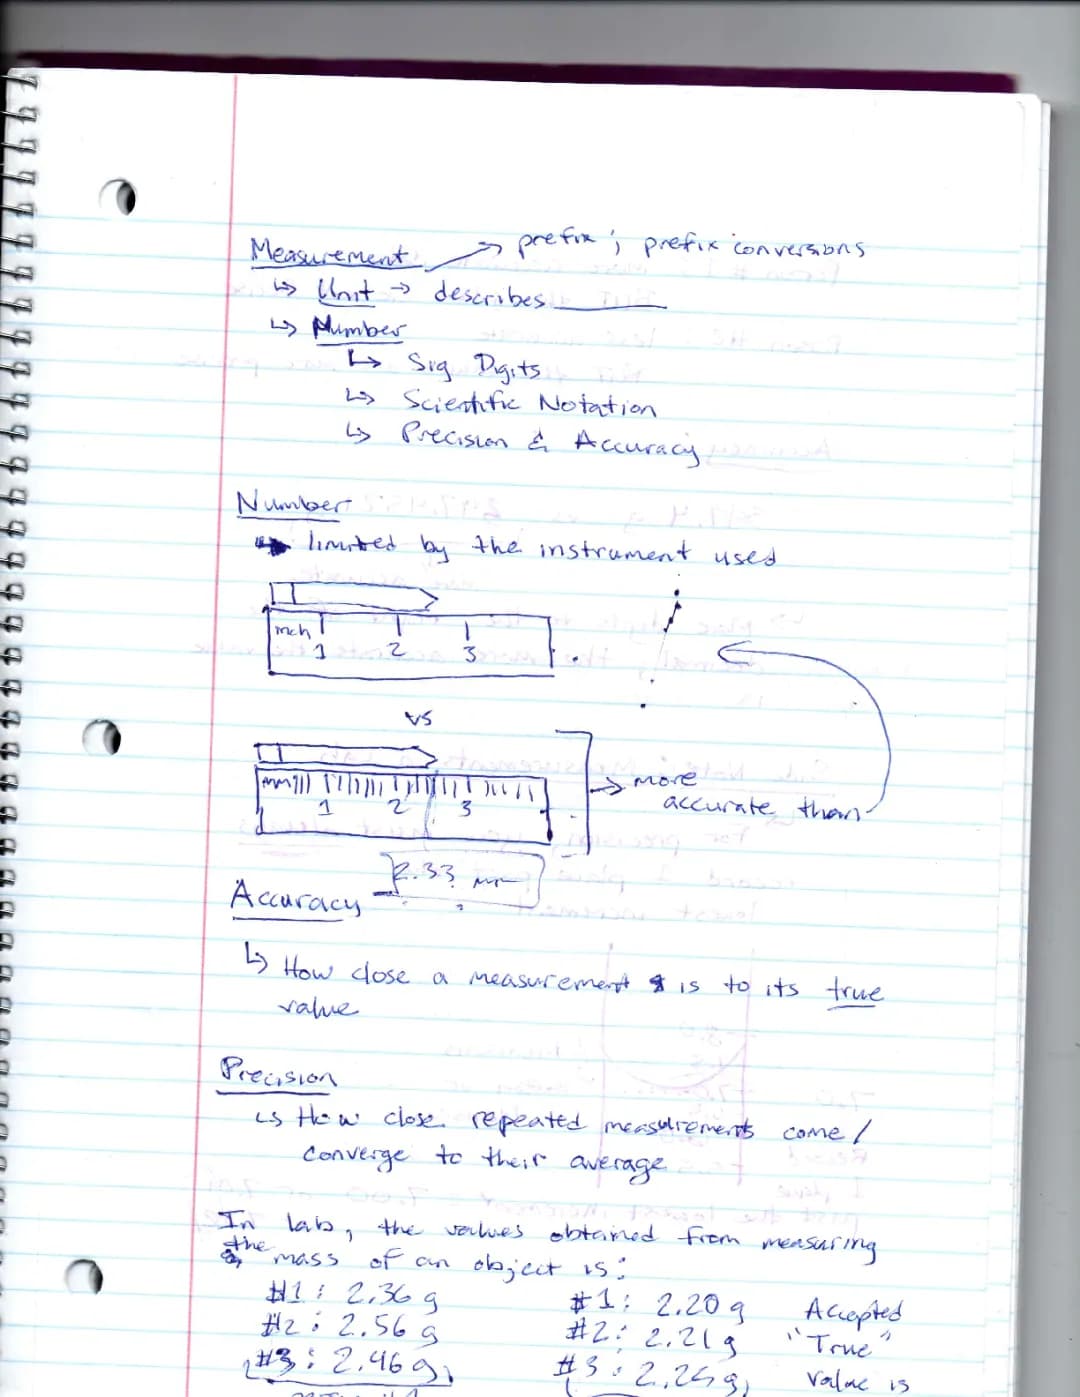 Measurement → prefix ; prefix conversions
↳ Unit → describes ______
↳ Number
↳ Sig Digits
↳ Scientific Notation
↳ Precision & Accuracy
Number
limited by the instrument used
inch 1 2 3
vs
mm 1 2 3
→ more
accurate than
2.33
Accuracy
↳ How close a measurement is to its true
value
Precision
↳ How close repeated measurements come /
converge to their average
In lab, the values obtained from measuring
the mass of an object is:
#1: 2.36 g #1: 2.20 g Accepted
#2: 2.56 g #2: 2.21 g "True"
#3: 2.46 g #3: g value is